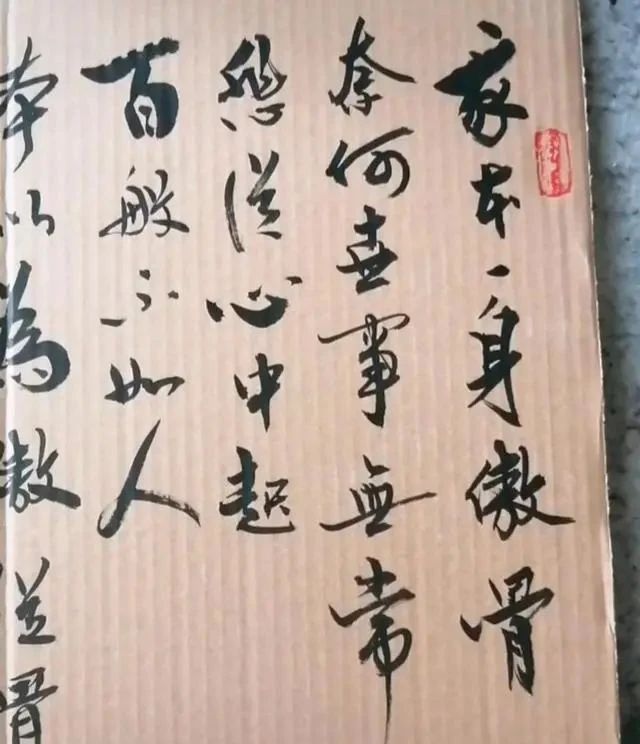 家本一身傲骨
奈何世事無常
從心中起
百般不如人
本以為傲從骨